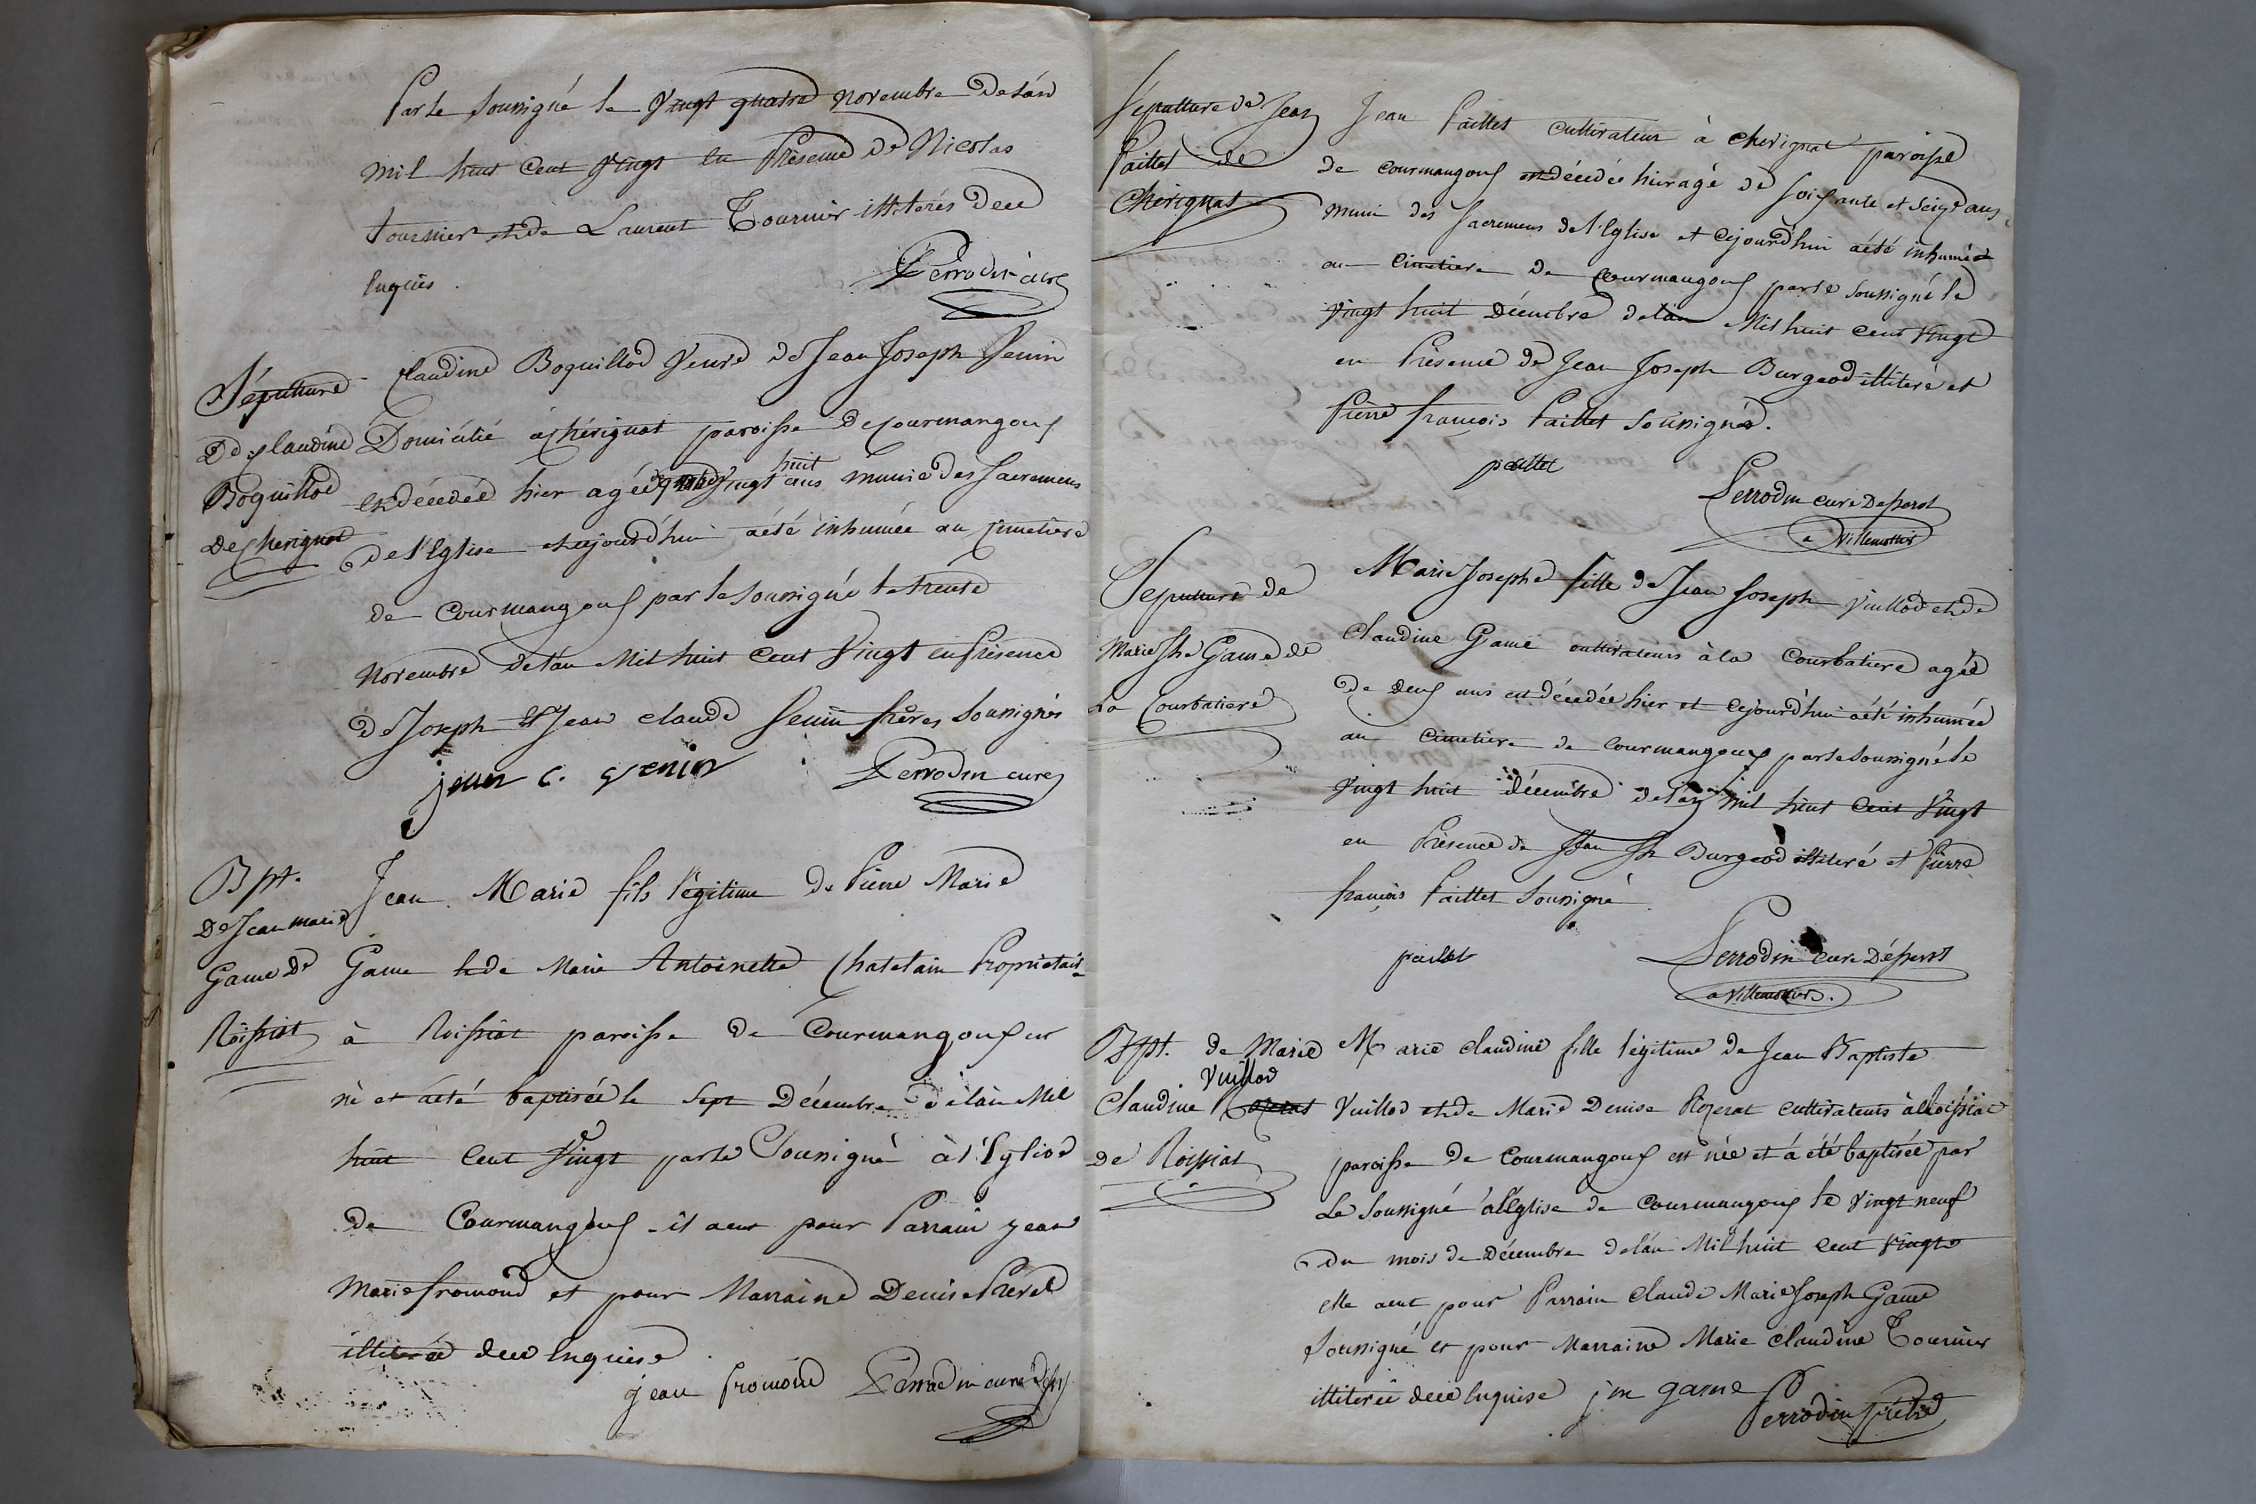 Par le soussigné le vingt quatre novembre de l'an
mil huit cent vingt en Présence de Nicolas
tournier et de Laurent Tournier illiterés de ce
enquis.
Perrodin curé
Sépulture
De Claudine
Boquillod
De Cherignat
Claudine Boquillod veuve de Jean Joseph Senin
Domicilié à Chérignat paroisse de Courmangoux
est décédée hier agée quatre vingt huit ans munie des sacremens
de l'Eglise et cejourd'hui a été inhumée au cimetiere
de Courmangoux par le soussigné le trente
novembre de l'an Mil huit cent vingt en Présence
de Joseph et Jean claude Senin frères soussignés
jean c. senin
Perrodin curé
Bpt.
De Jean marie
Game de
Roissiat
Jean Marie fils légitime de Pierre Marie
Game et de Marie Antoinette Chatelain Propriétaire
à Roissiat paroisse de Courmangoux est
né et a été baptisé le sept Décembre de l'an Mil
huit cent vingt par le soussigné à l'Eglise
de Courmangoux - il a eut pour Parrain jean
Marie fromond et pour Marraine Denise
illiterée de ce enquise.
jean fromond
Perrodin curé
Sépulture de Jean
Paillet de
Chérignat
Jean Paillet cultivateur à cherignat paroisse
de courmangoux est décédé hier agé de soixante et seize ans
muni des sacremens de l'Eglise et cejourd'hui a été inhumé
au cimetiere de courmangoux par le soussigné le
vingt huit décembre de l'an Mil huit cent vingt
en Présence de Jean Joseph Burgeod illiteré et
Pierre françois Paillet soussigné.
paillet
Perrodin curé
a villemotier
Sepulture de
Marie Jhe Game de
La Courbatiere
Marie Josephe fille de Jean Joseph Vuillod et de
Claudine Game cultivateurs à la Courbatiere agée
de deux ans est décédée hier et cejourd'hui a été inhumée
au cimetiere de courmangoux par le soussigné le
vingt huit décembre de l'an mil huit cent vingt
en Présence de Jean Jh Burgeod illiteré et Pierre
françois Paillet soussigné
paillet
Perrodin curé
a villemotier.
Bpt. de Marie
Vuillod
Claudine
de Roissiat
Marie claudine fille légitime de Jean Baptiste
Vuillod et de Marie Denise Rozerat cultivateurs à Roissiat
paroisse de Courmangoux est née et à été baptisée par
Le soussigné à l'Eglise de Courmangoux le vingt neuf
du mois de décembre de l'an Mil huit cent vingt
elle a eut pour Parrain Claude Marie Joseph Game
soussigné et pour Marraine Marie claudine Tournier
illiterée de ce enquise
j m game
Perrodin